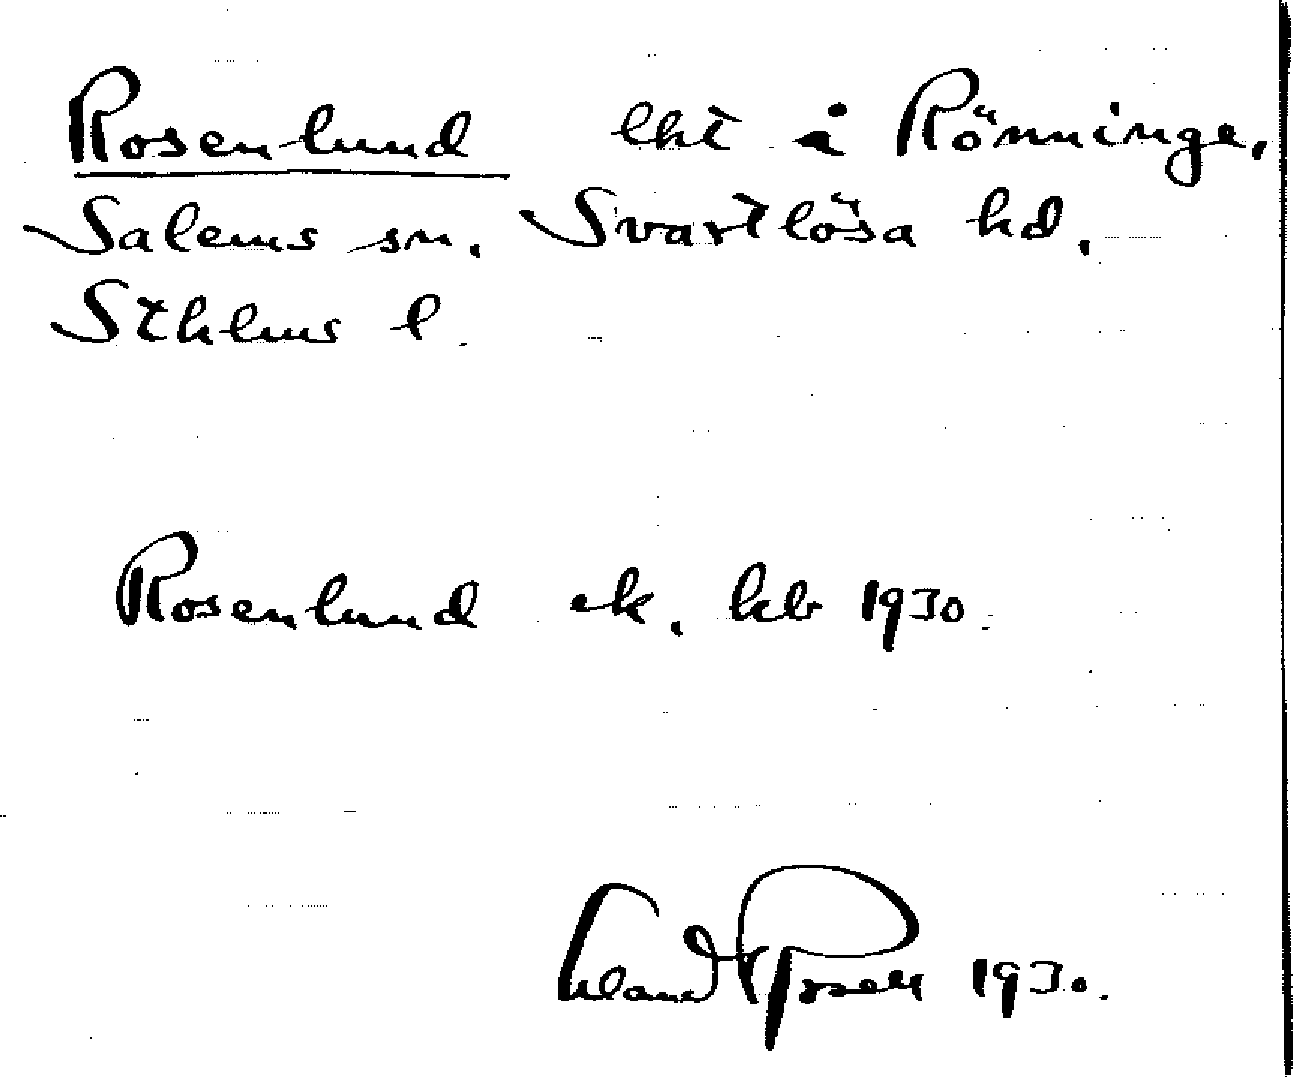 Rosenlund lht å Rönninge,
Salems sn. Svartlösa hd.
Sthlms l.
Rosenlund ek. kb 1930.
1930.